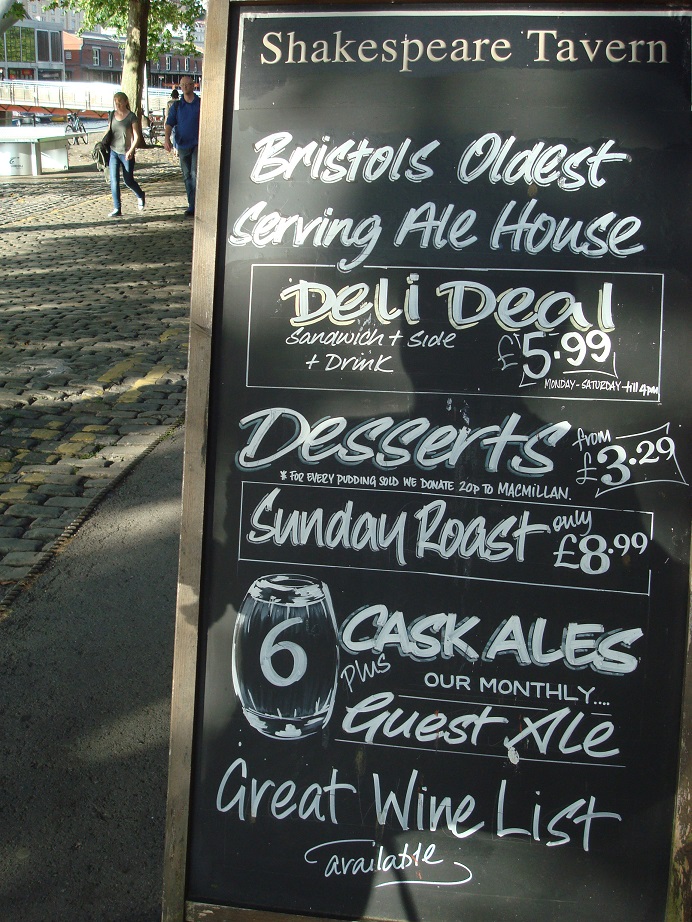 Shakespeare Tavern
Bristols Oldest
Serving Ale House
Deli Deal
Sandwich + Side
+ Drink
£5.99
MONDAY - SATURDAY till 4pm
Desserts
from
£3.29
* FOR EVERY PUDDING SOLD WE DONATE 20p TO MACMILLAN.
Sunday Roast
only
£8.99
6
CASK ALES
plus
OUR MONTHLY....
Guest Ale
Great Wine List
available